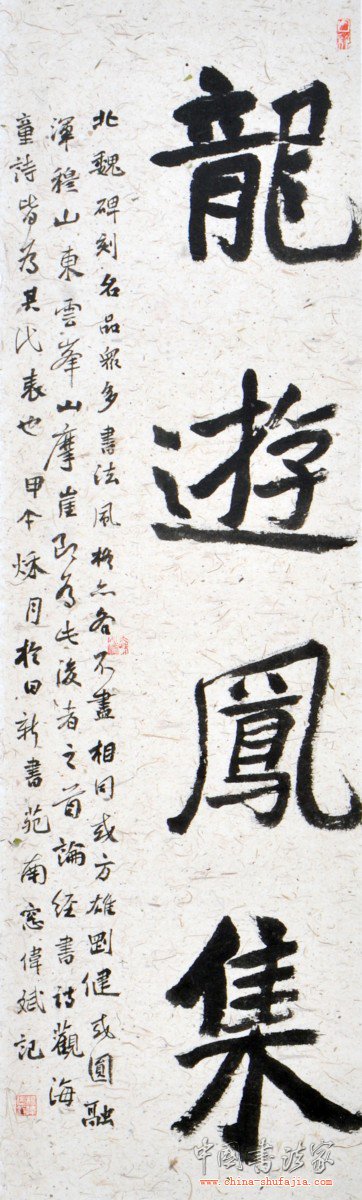 龍遊鳳集
北魏碑刻名品衆多書法風格亦各不盡相同或方雄剛健或圓融
渾穆山東雲峯山摩崖即為此後者之首論經書詩觀海
童詩皆為其代表也甲午秌月於日新書苑南窓偉斌記
中國書法家
www.china-shufajia.com